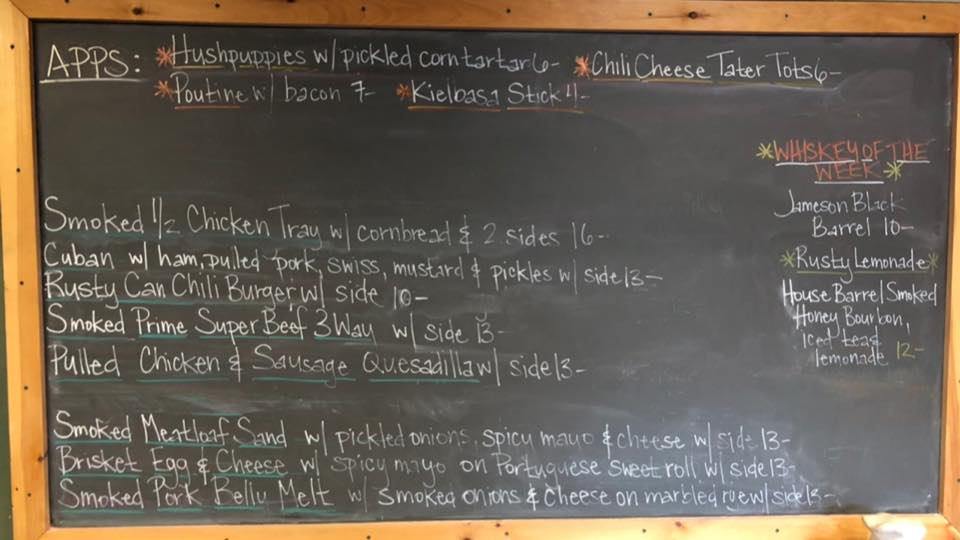 APPS: *Hushpuppies w/ pickled corn tartar 6- *Chili Cheese Tater Tots 6-
*Poutine w/ bacon 7- *Kielbasa Stick 4-
*WHISKEY OF THE
WEEK*
Jameson Black
Barrel 10-
*Rusty Lemonade*
House Barrel Smoked
Honey Bourbon,
Iced tea &
lemonade 12-
Smoked 1/2 Chicken Tray w/ cornbread & 2 sides 16-
Cuban w/ ham, pulled pork, swiss, mustard & pickles w/ side 13-
Rusty Can Chili Burger w/ side 10-
Smoked Prime Super Beef 3 Way w/ side 13-
Pulled Chicken & Sausage Quesadilla w/ side 13-
Smoked Meatloaf Sand w/ pickled onions, spicy mayo & cheese w/ side 13-
Brisket Egg & Cheese w/ spicy mayo on Portuguese sweet roll w/ side 13-
Smoked Pork Belly Melt w/ smoked onions & cheese on marbled rye w/ side 13-